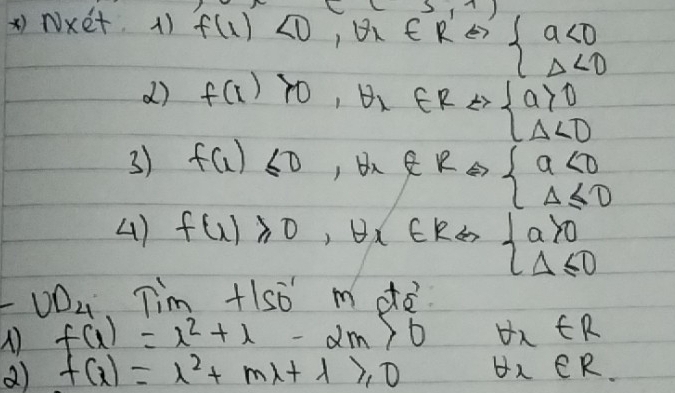 *) Nxét. 1) f(x) < 0, ∀x ∈ R ⇔ { a < 0
Δ < 0
2) f(x) > 0, ∀x ∈ R ⇔ { a > 0
Δ < 0
3) f(x) ≤ 0, ∀x ∈ R ⇔ { a < 0
Δ ≤ 0
4) f(x) ≥ 0, ∀x ∈ R ⇔ { a > 0
Δ ≤ 0
- VD4 Tìm t/số m để:
1) f(x) = x² + x - 2m > 0 ∀x ∈ R
2) f(x) = x² + mx + 1 ≥ 0 ∀x ∈ R.